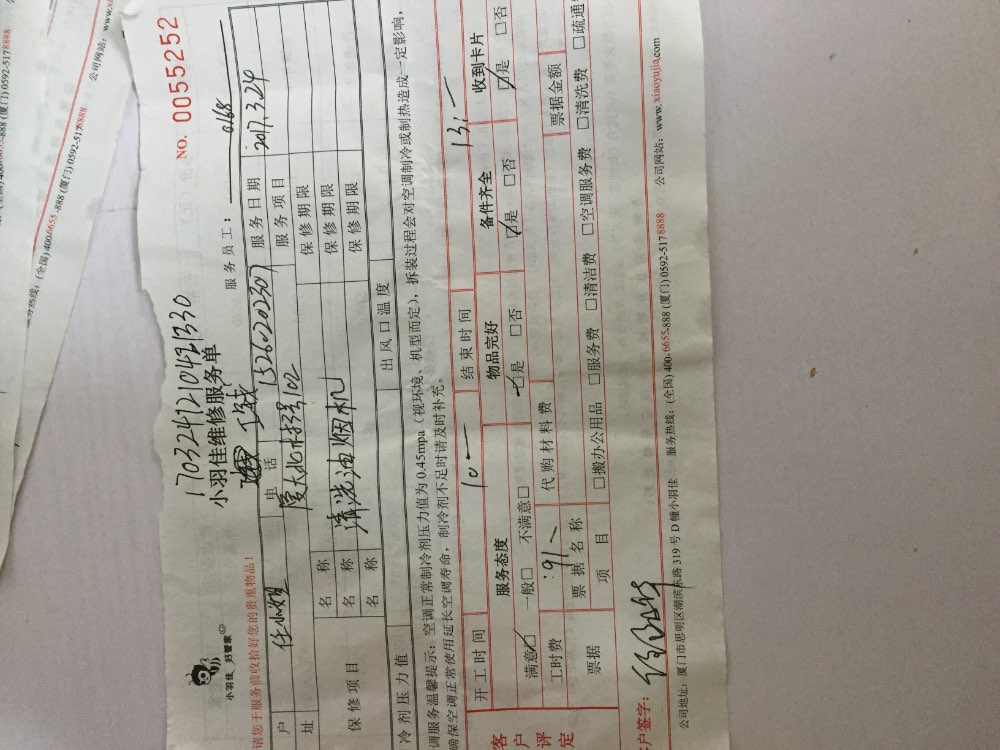 170324121042133​0
小羽佳 好管家
小羽佳维修服务单
NO. 0055252
请您于服务前收拾好您的贵重物品!
服务员工: 0168
户 任小姐 电话 15260202307 服务日期 2017.3.24
址 102 服务项目
保修项目
名称 清洗油烟机 保修期限
名称 保修期限
名称 保修期限
冷剂压力值 出风口温度
调服务温馨提示: 空调正常制冷剂压力值为 0.45mpa (视环境、机型而定), 拆装过程会对空调制冷或制热造成一定影响,
确保空调正常使用延长空调寿命, 制冷剂不足时请及时补充。
开工时间 10 结束时间 13:
客户评定
服务态度 物品完好 备件齐全 收到卡片
满意☑ 一般□ 不满意□ ☑是 □否 ☑是 □否 ☑是 □否
工时费 :91 代购材料费
票据 票据名称 票据金额
项目 □搬办公用品 □服务费 □清洁费 □空调服务费 □清洗费 □疏通
户签字:
公司地址: 厦门市思明区湖滨东路 319 号 D 幢小羽佳 服务热线: (全国) 400-6655-888 (厦门) 0592-5178888 公司网站: www.xiaoyujia.com
服务热线: (全国) 400-6655-888 (厦门) 0592-5178888 公司网站: www.xi